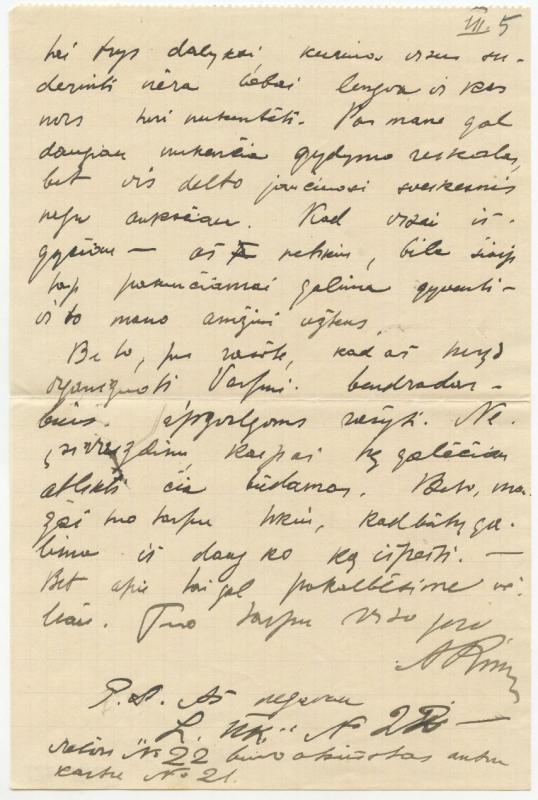 III. 5
tai trys dalykai kuriuos visus su-
derinti nėra labai lengva ir kas
nors turi nukentėti. Pas mane gal
daugiau nukenčia gydymo reikalas,
bet vis delto jaučiuosi sveikesnis
negu anksčiau. Kad visai iš-
gyčiau — aš netikiu, bile šiaip
taip pakenčiamai galima gyventi —
ir to mano amžiui užteks.
Be to, jus rašote, kad aš
organizuoti Varpui bendradar-
bius. apžvalgoms rašyti. Ne-
kaip aš tą galėčiau
atlikti čia būdamas. Be to, ma-
žai tuo tarpu tikiu, kad būtų ga-
lima iš dang ko ką išpešti. —
Bet apie tai gal pakalbėsime vė-
liau. Tuo tarpu viso gero
P.S. Aš negavau
L. ūk." No 2 —
vietoj No 22 buvo atsiųstas antru
kartu No 21.